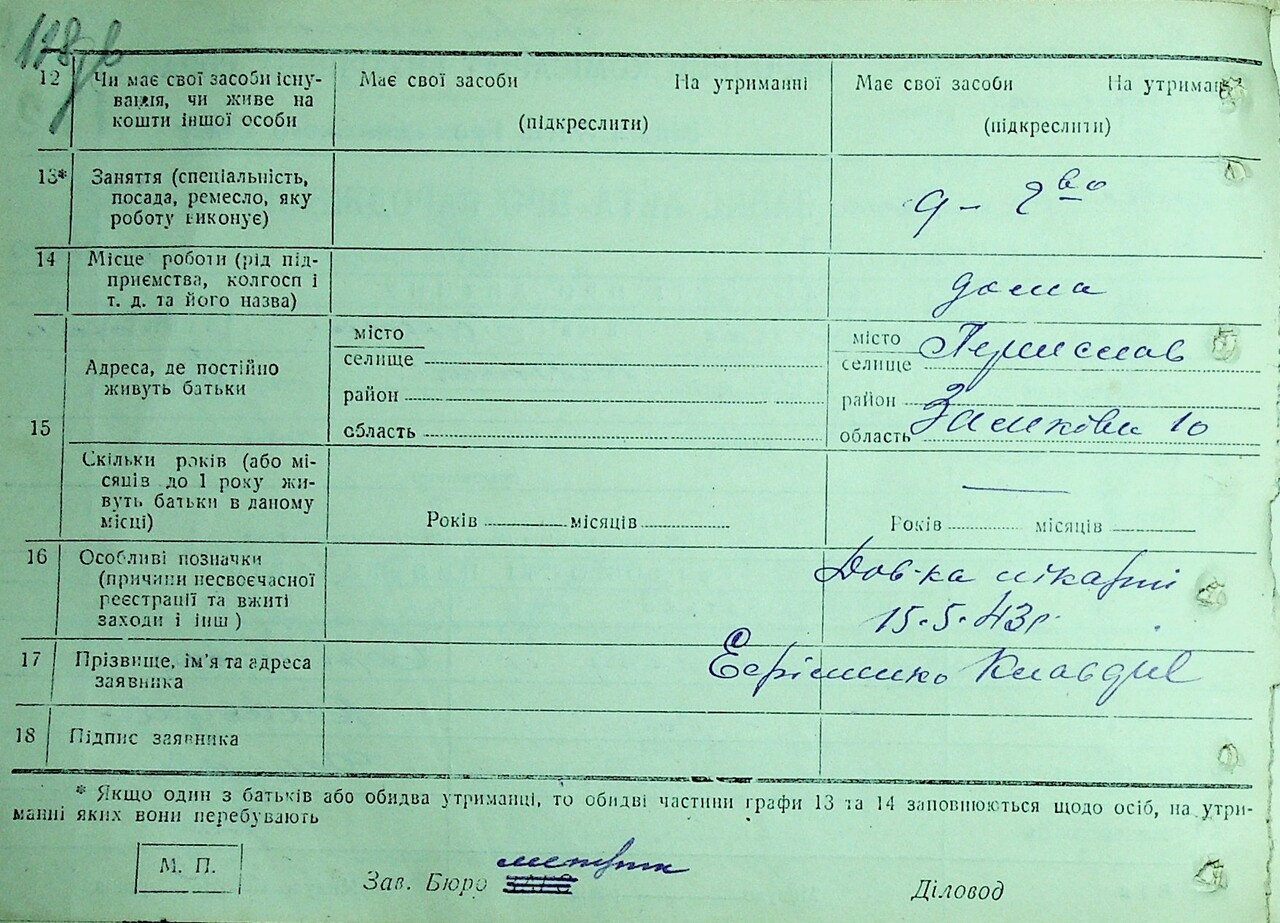 118 зв
12 Чи має свої засоби існу-
вання, чи живе на
кошти іншої особи
Має свої засоби На утриманні
(підкреслити)
Має свої засоби На утриман
(підкреслити)
13* Заняття (спеціальність,
посада, ремесло, яку
роботу виконує)
14 Місце роботи (рід під-
приємства, колгосп і
т. д. та його назва)
дома
15 Адреса, де постійно
живуть батьки
місто
селище
район
область
місто
селище
район
область
10
Скільки років (або мі-
сяців до 1 року жи-
вуть батьки в даному
місці)
Років місяців
Років місяців
16 Особливі позначки
(причини несвоєчасної
реєстрації та вжиті
заходи і інш)
Дов-ка лікарні
15.5.43р.
17 Прізвище, ім'я та адреса
заявника
18 Підпис заявника
* Якщо один з батьків або обидва утриманці, то обидві частини графи 13 та 14 заповнюються щодо осіб, на утри-
манні яких вони перебувають
М. П.
метрик
Зав. Бюро ЗАГС
Діловод